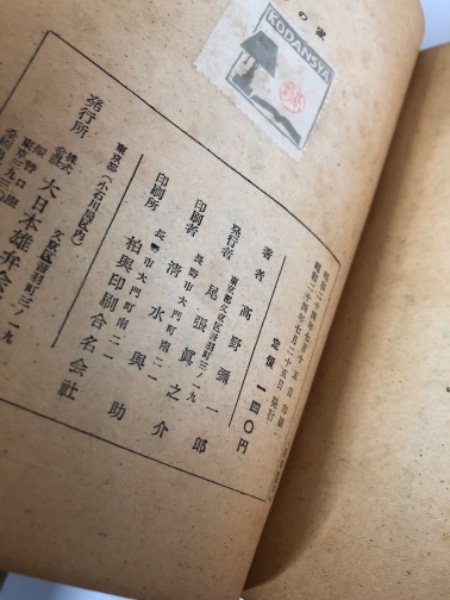 の家
KODANSYA
昭和二十四年七月十五日印刷
昭和二十四年七月二十五日発行
定價 一四〇円
著者 高野彌一郎
東京都文京区音羽町三ノ一九
発行者 尾張眞之介
長野市大門町南二一
印刷者 清水興助
長野市大門町南二一
印刷所 柏興印刷合名会社
東京都（小石川局区内）
文京区音羽町三ノ一九
発行所 株式会社 大日本雄弁会